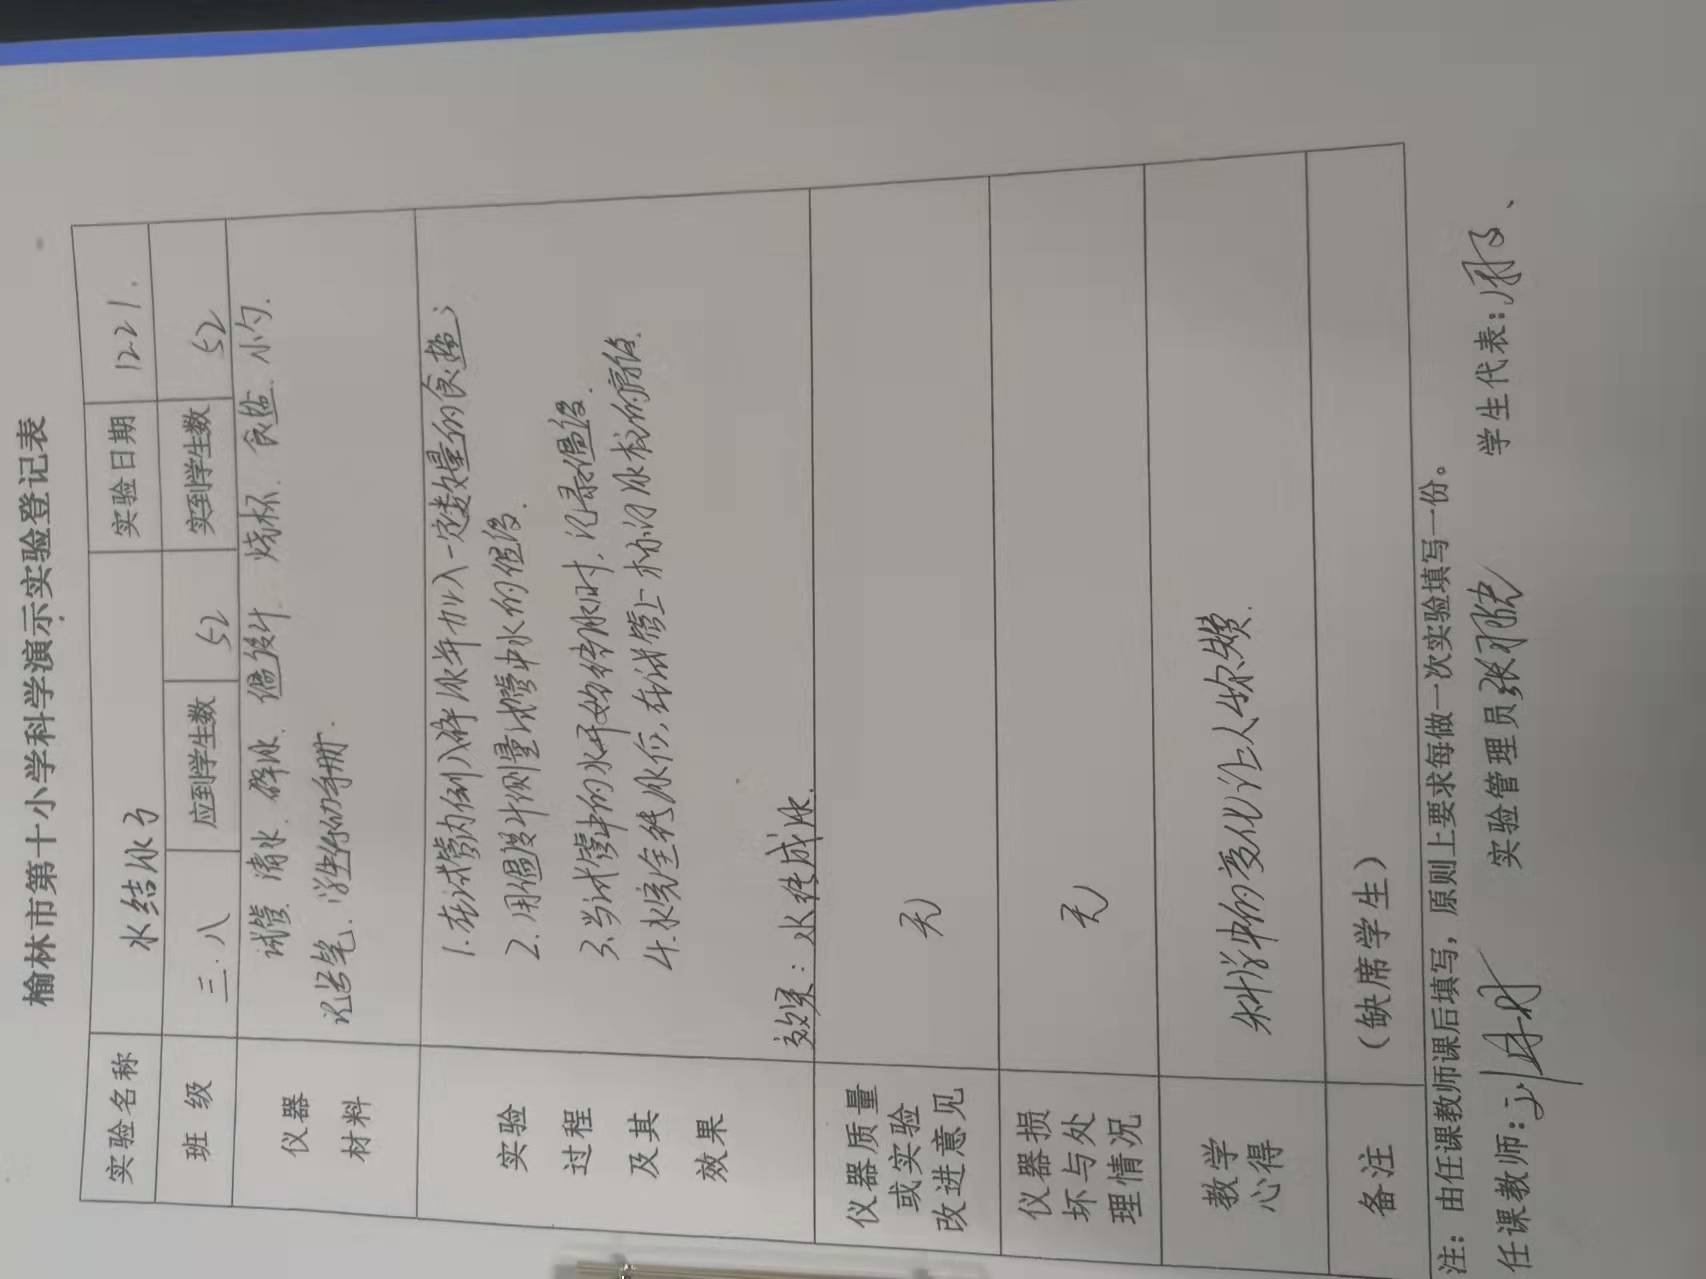 榆林市第十小学科学演示实验登记表
实验名称 水结冰了 实验日期 1221.
班级 三.八 应到学生数 52 实到学生数 52
仪器材料 试管. 清水. 碎冰. 温度计. 烧杯. 食盐. 小勺.
记号笔. 学生活动手册.
实验过程及其效果
1.在试管内倒入碎冰并加入一定数量的食盐;
2.用温度计测量试管中水的温度.
3.当试管中的水开始结冰时,记录温度.
4.水完全结冰后,在试管上标记冰柱的高度.
效果:水结成冰.
仪器质量或实验改进意见 无
仪器损坏与处理情况 无
教学心得 科学中的变化让人称赞.
备注 (缺席学生)
注:由任课教师课后填写,原则上要求每做一次实验填写一份。
任课教师: 实验管理员 张 学生代表: